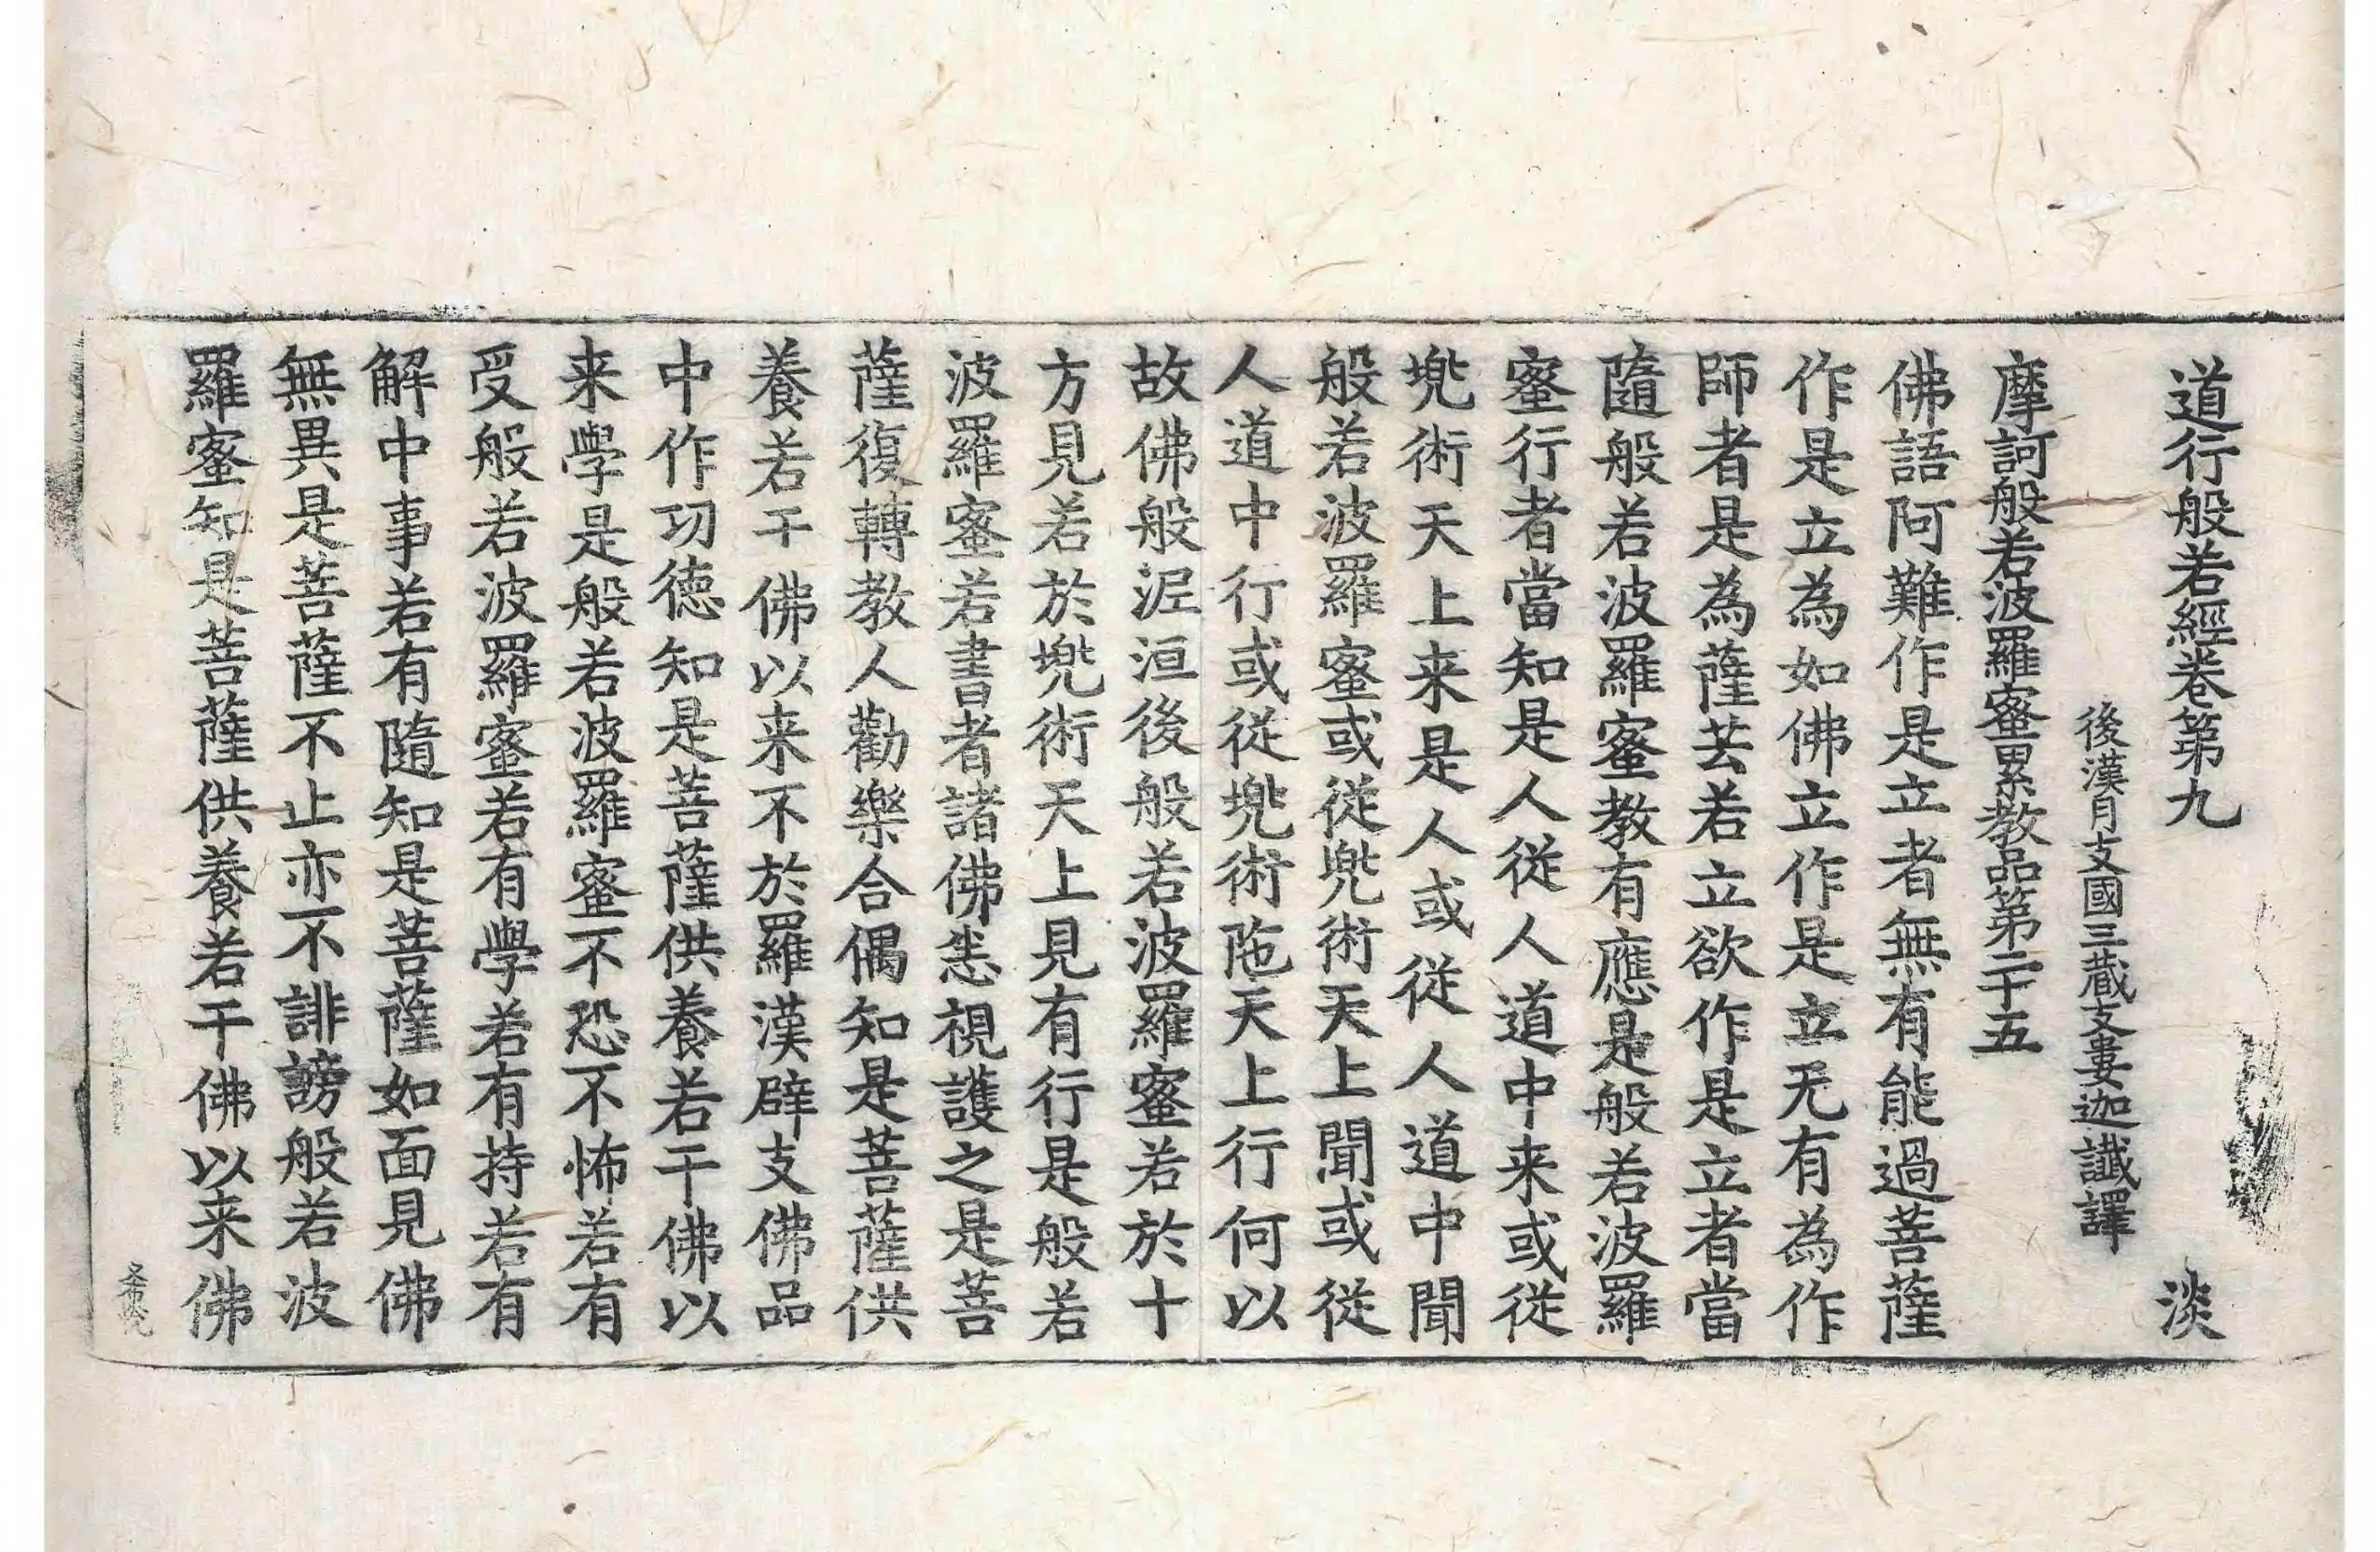 道行般若經卷第九 淡
後漢月支國三藏支婁迦讖譯
摩訶般若波羅蜜累教品第二十五
佛語阿難作是立者無有能過菩薩
作是立為如佛立作是立无有為作
師者是為薩芸若立欲作是立者當
隨般若波羅蜜教有應是般若波羅
蜜行者當知是人從人道中来或從
兠術天上来是人或從人道中聞
般若波羅蜜或從兠術天上聞或從
人道中行或從兠術陁天上行何以
故佛般泥洹後般若波羅蜜若於十
方見若於兠術天上見有行是般若
波羅蜜若書者諸佛悉視護之是菩
薩復轉教人勸樂合偶知是菩薩供
養若干佛以来不於羅漢辟支佛品
中作功德知是菩薩供養若干佛以
来學是般若波羅蜜不恐不怖若有
受般若波羅蜜若有學若有持若有
解中事若有隨知是菩薩如面見佛
無異是菩薩不止亦不誹謗般若波
羅蜜知是菩薩供養若干佛以来佛